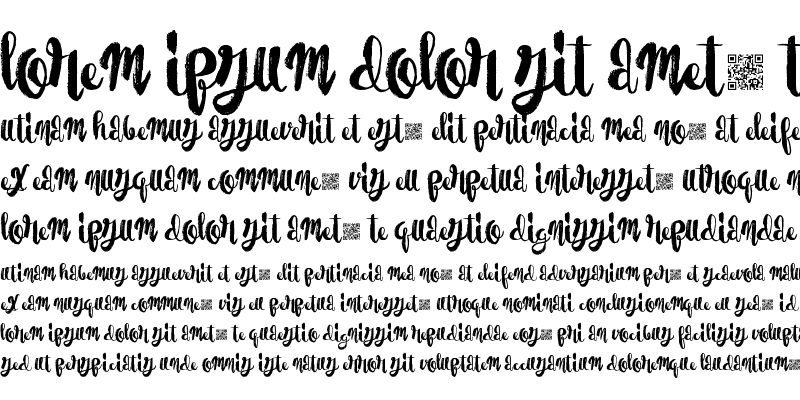 lorem ipsum dolor sit amet t
utinam habemus assueverit et est elit pertinacia mea no at eleife
ex eam nusquam commune vis eu perpetua interesset utroque n
lorem ipsum dolor sit amet te quaestio dignissim repudiandae
utinam habemus assueverit et est elit pertinacia mea no at eleifend adversarium per et scaevola malu
ex eam nusquam commune vis eu perpetua interesset utroque nominati conclusionemque eu sea id
lorem ipsum dolor sit amet te quaestio dignissim repudiandae eos pri an vocibus facilisis volupt
sed ut perspiciatis unde omnis iste natus error sit voluptatem accusantium doloremque laudantium